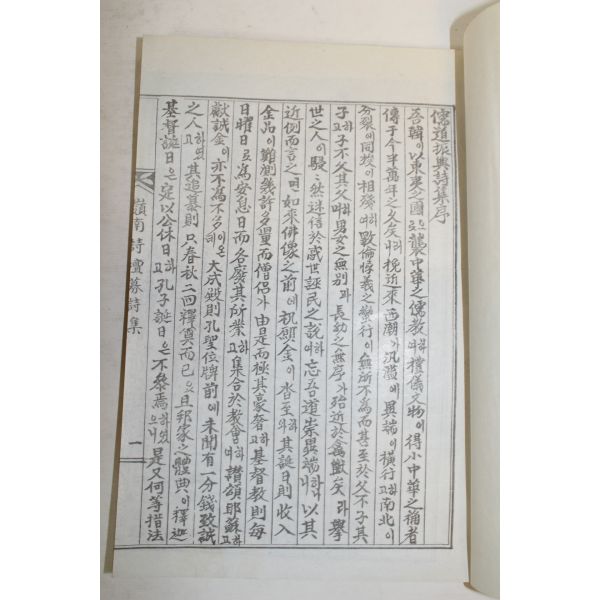 儒道振興詩集序
吾韓이以東夷之國으로襲中華之儒教하야禮儀文物이得小中華之稱者
傳于今半萬年之久矣러니挽近來西潮가汎濫에異端이橫行하고南北이
分裂에同族이相殘하야斁倫悖義之蠻行이無所不為而甚至於父不子其
子하고子不父其父하야男女之無別과長幼之無序가殆近於禽獸矣라擧
世之人이駸駸然迷信於惑世誣民之說하야忘吾道崇異端하나니以其
近例而言之면如來佛像之前에祝願金이沓至와其誕日則收入
金品이難測幾許多量而僧侶가由是而極其豪奢하고基督教則每
日曜日로為安息日而各廢其所業하고集合於教會하야讚頌耶蘇하고
獻誠金이亦不為不多이온데大成殿則孔聖位牌前에未聞有一分錢致誠
之人하고其追慕則只春秋二回釋奠而已오且邦家之體典이釋迦
基督誕日은定以公休日하고孔子誕日은不參焉하였으니是又何等措法
嶺南詩壇募詩集
一